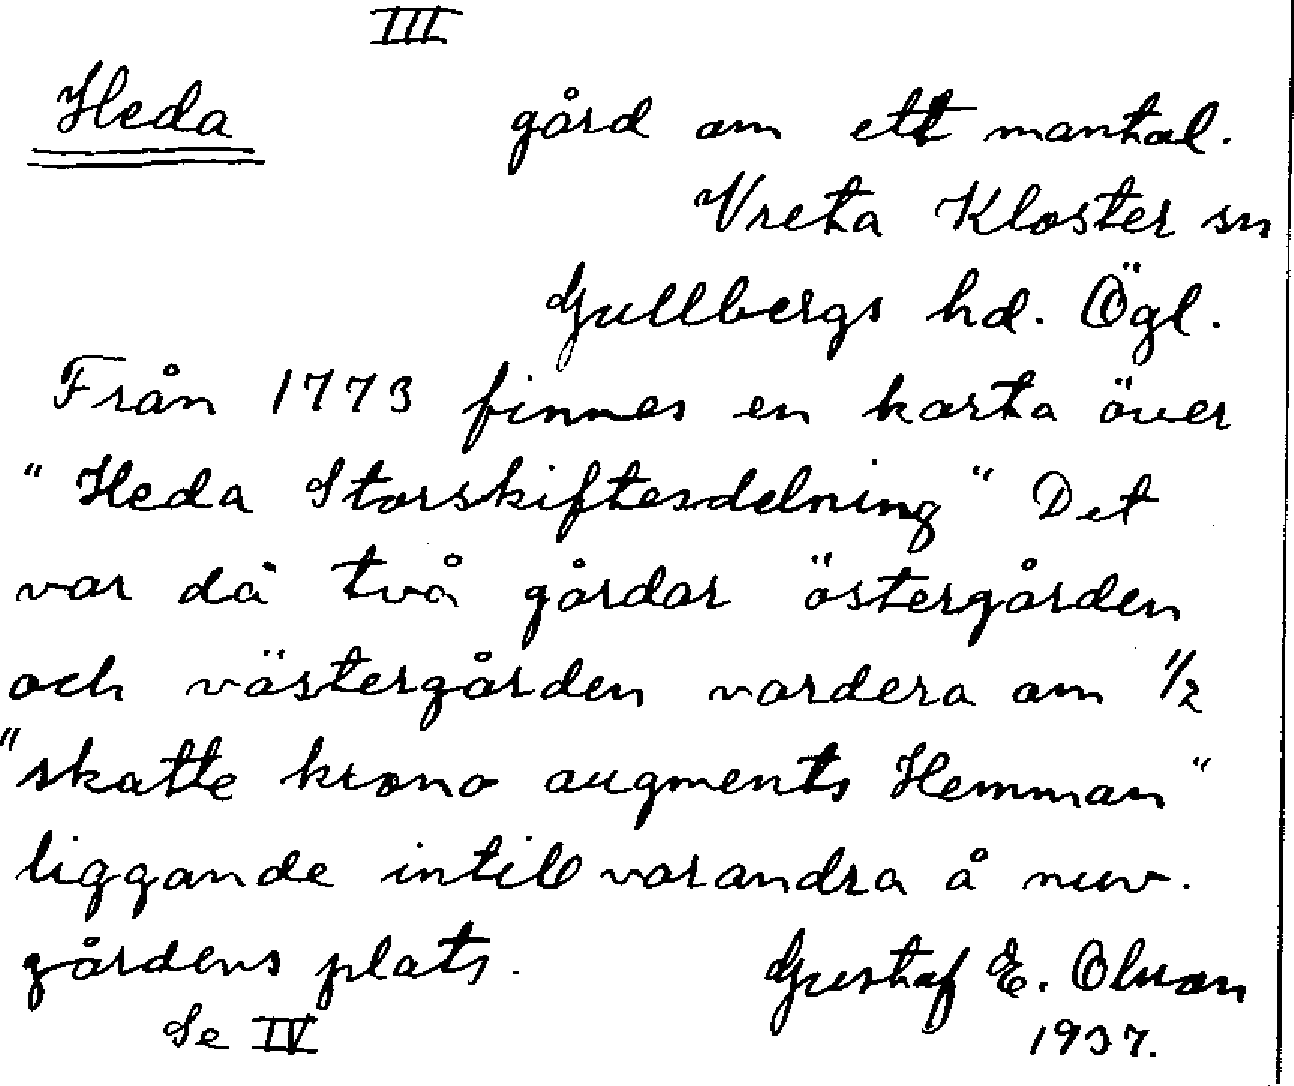 III
Heda gård om ett mantal.
Vreta Kloster sn
Gullbergs hd. Ögl.
Från 1773 finnes en karta över
"Heda Storskiftesdelning" Det
var då två gårdar östergården
och västergården vardera om 1/2
"skatte krono augments Hemman"
liggande intill varandra å nuv.
gårdens plats.
Gustaf E. Olson
Se IV
1937.